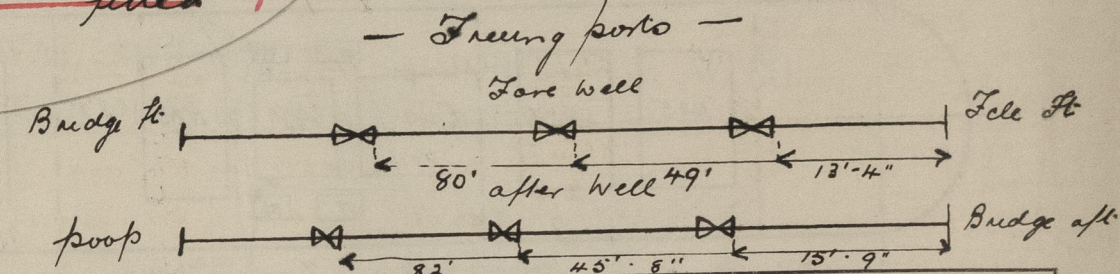 — Freeing ports —
Fore well
Bridge ft Fcle Ft
80' 49' 13'-4"
after well
poop Bridge aft
82' 45'. 8" 15'. 9"